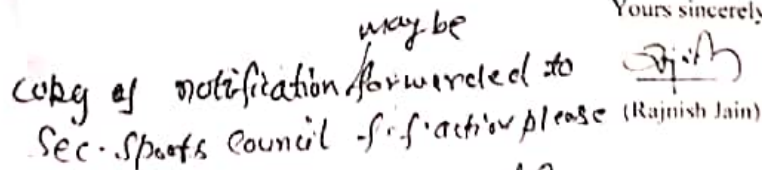 Yours sincerely
may be
copy of notification forwarded to
Sec. Sports Council f.f. action please
(Rajnish Jain)